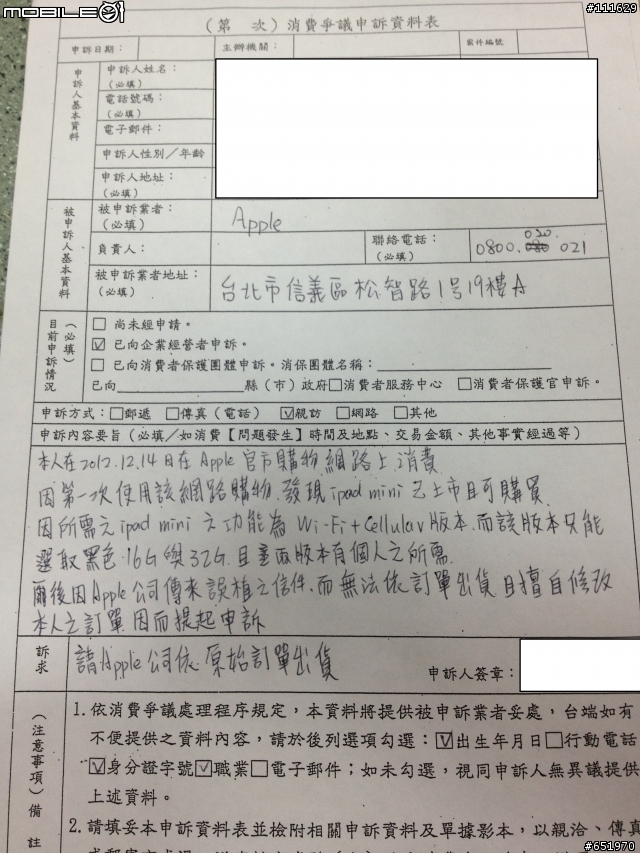 MOBILE01
#111629
（第　次）消費爭議申訴資料表
申訴日期： 主辦機關： 案件編號
申訴人基本資料
申訴人姓名：
（必填）
電話號碼：
（必填）
電子郵件：
申訴人性別／年齡
申訴人地址：
（必填）
被申訴人基本資料
被申訴業者：
（必填）
Apple
負責人：
聯絡電話：
（必填）
020.
0800. 080 021
被申訴業者地址：
（必填）
台北市信義區松智路1号19樓A
目前申訴情況（必填）
□尚未經申請。
☑已向企業經營者申訴。
□已向消費者保護團體申訴。消保團體名稱：
已向　縣（市）政府□消費者服務中心　□消費者保護官申訴。
申訴方式：□郵遞　□傳真（電話）　☑親訪　□網路　□其他
申訴內容要旨（必填／如消費【問題發生】時間及地點、交易金額、其他事實經過等）
本人在2012.12.14日在Apple官方購物網路上消費.
因第一次使用該網路購物.發現ipad mini已上市且可購買.
因所需之ipad mini之功能為Wi-Fi+Cellular版本.而該版本只能
選取黑色.16G與32G.且 版本有個人之所需.
爾後因Apple公司傳來誤植之信件.而無法依訂單出貨 且擅自修改
本人之訂單 因而提起申訴
訴求
請Apple公司依原始訂單出貨
申訴人簽章：
（注意事項）備註
1. 依消費爭議處理程序規定，本資料將提供被申訴業者妥處，台端如有
不便提供之資料內容，請於後列選項勾選：☑出生年月日□行動電話
☑身分證字號☑職業□電子郵件；如未勾選，視同申訴人無異議提供
上述資料。
2. 請填妥本申訴資料表並檢附相關申訴資料及單據影本，以親洽、傳真
#651970